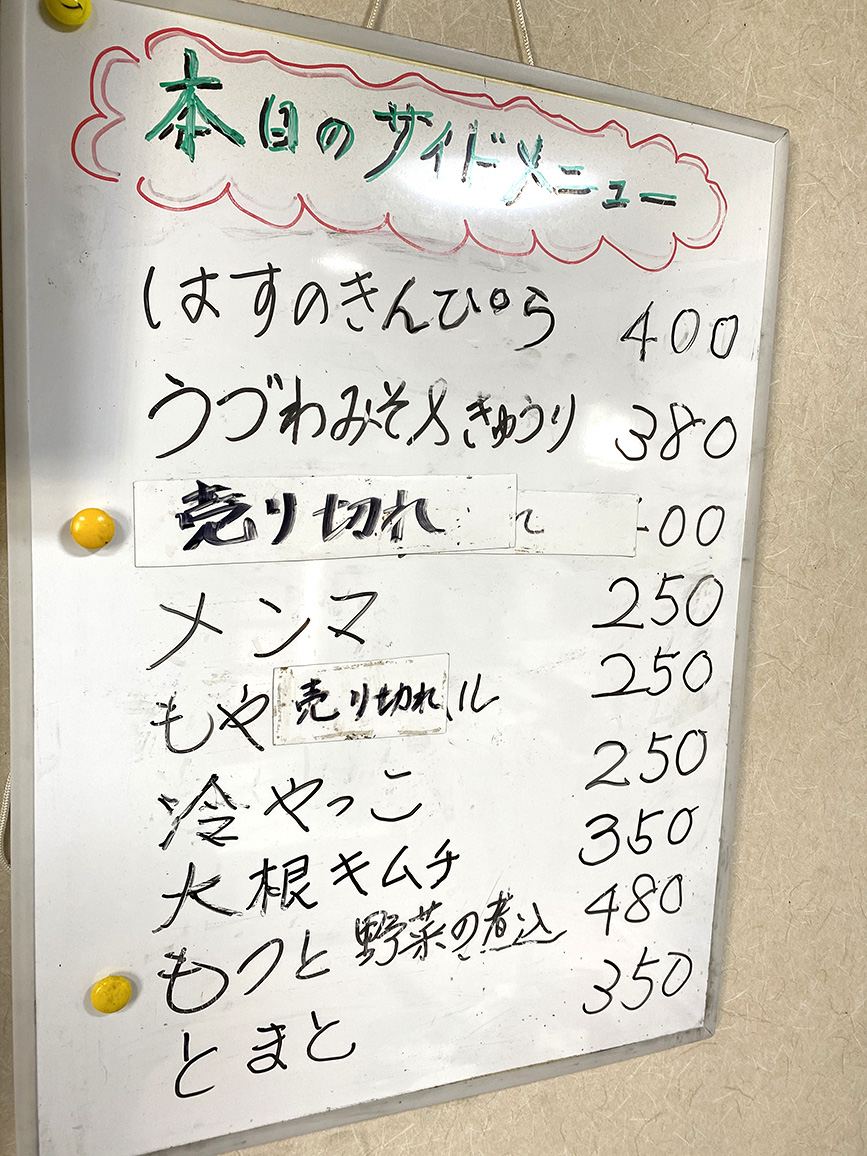 本日のサイドメニュー
はすのきんぴら 400
うづわみそ〆きゅうり 380
売り切れ 00
メンマ 250
もや 売り切れ ル 250
冷やっこ 250
大根キムチ 350
もつと野菜の煮込 480
とまと 350